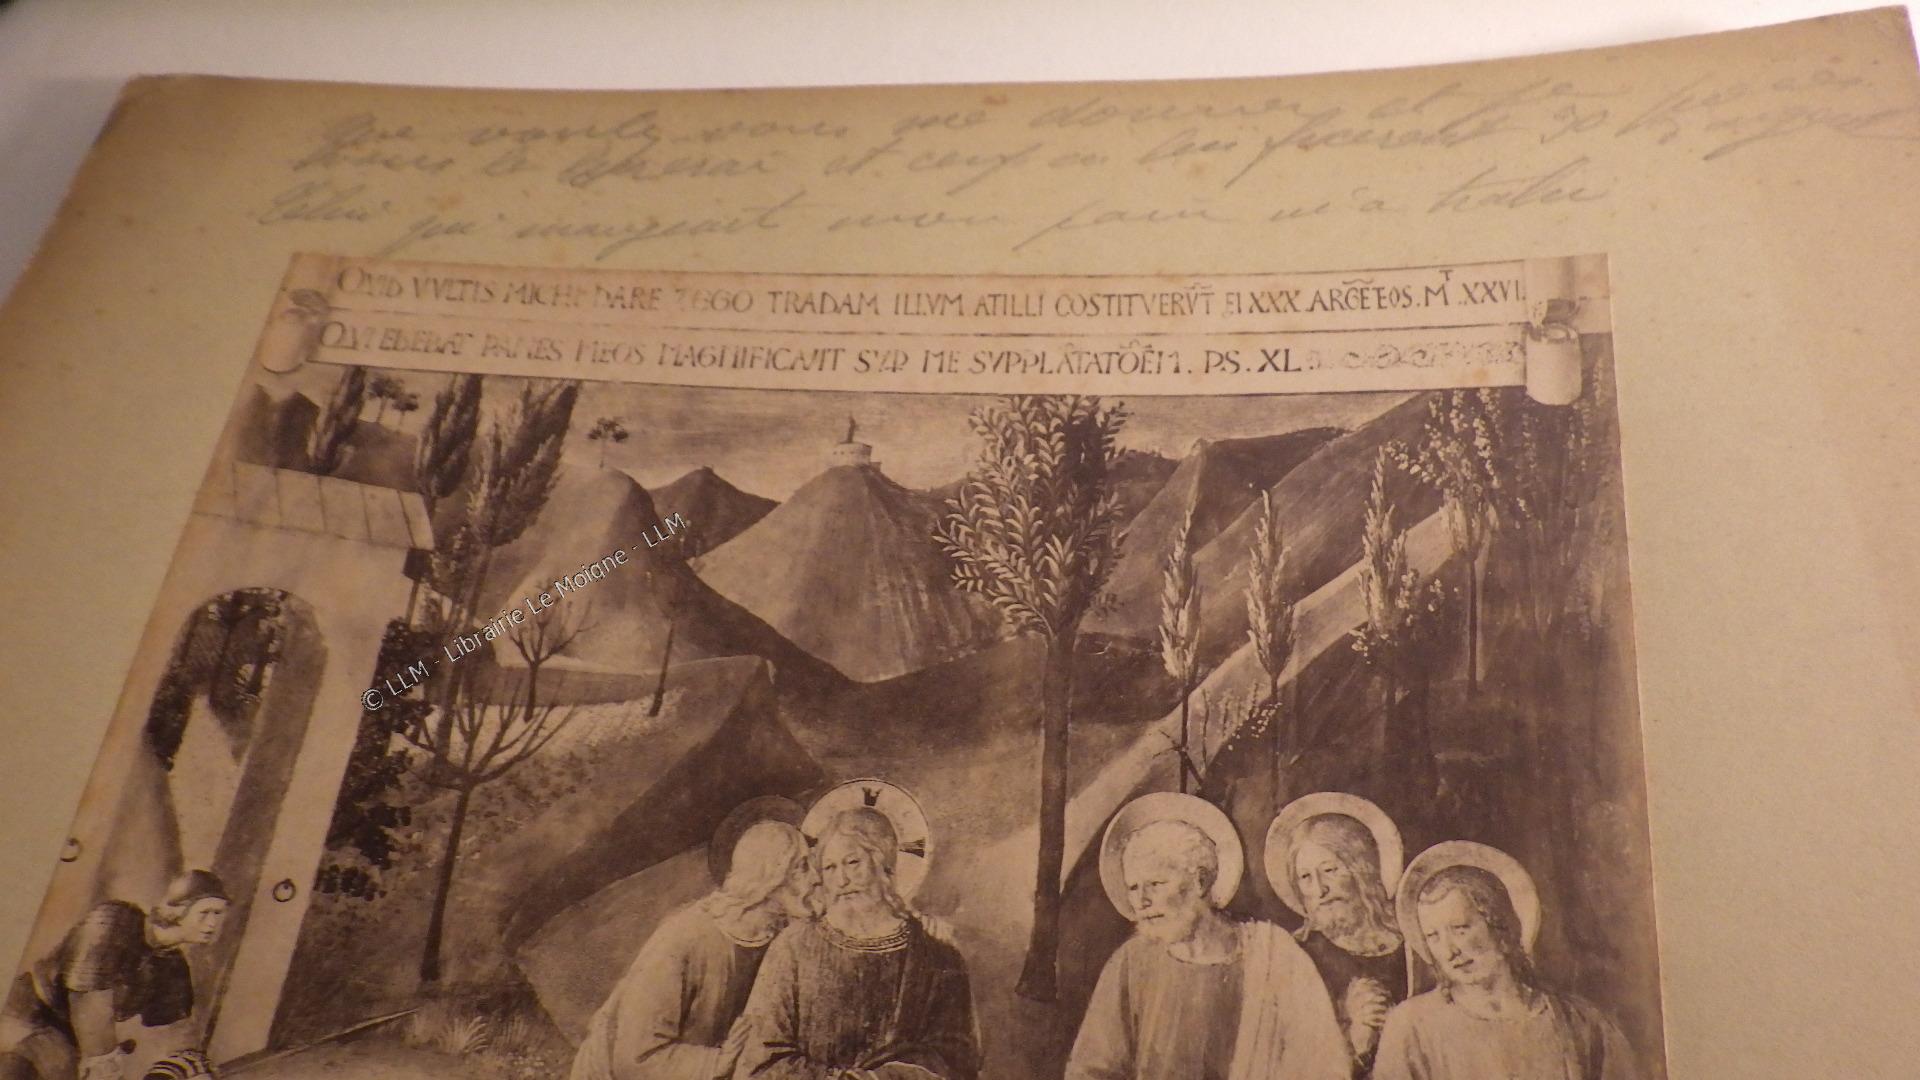 Que voulez vous me donner et je
vous le livrerai et ceux ci lui firent 30 pièces d'argent
Celui qui mangeait mon pain m'a trahi
QVID VVLTIS MICHI DARE 7 EGO TRADAM ILLVM ATILLI COSTITVERV̄T̄ EI XXX ARGĒTEOS. Mᵀ. XXVI.
QVI EDEBAT PANES MEOS MAGNIFICAVIT SVP ME SVPPLĀTATŌĒM. PS. XL
© LLM - Librairie Le Moigne - LLM